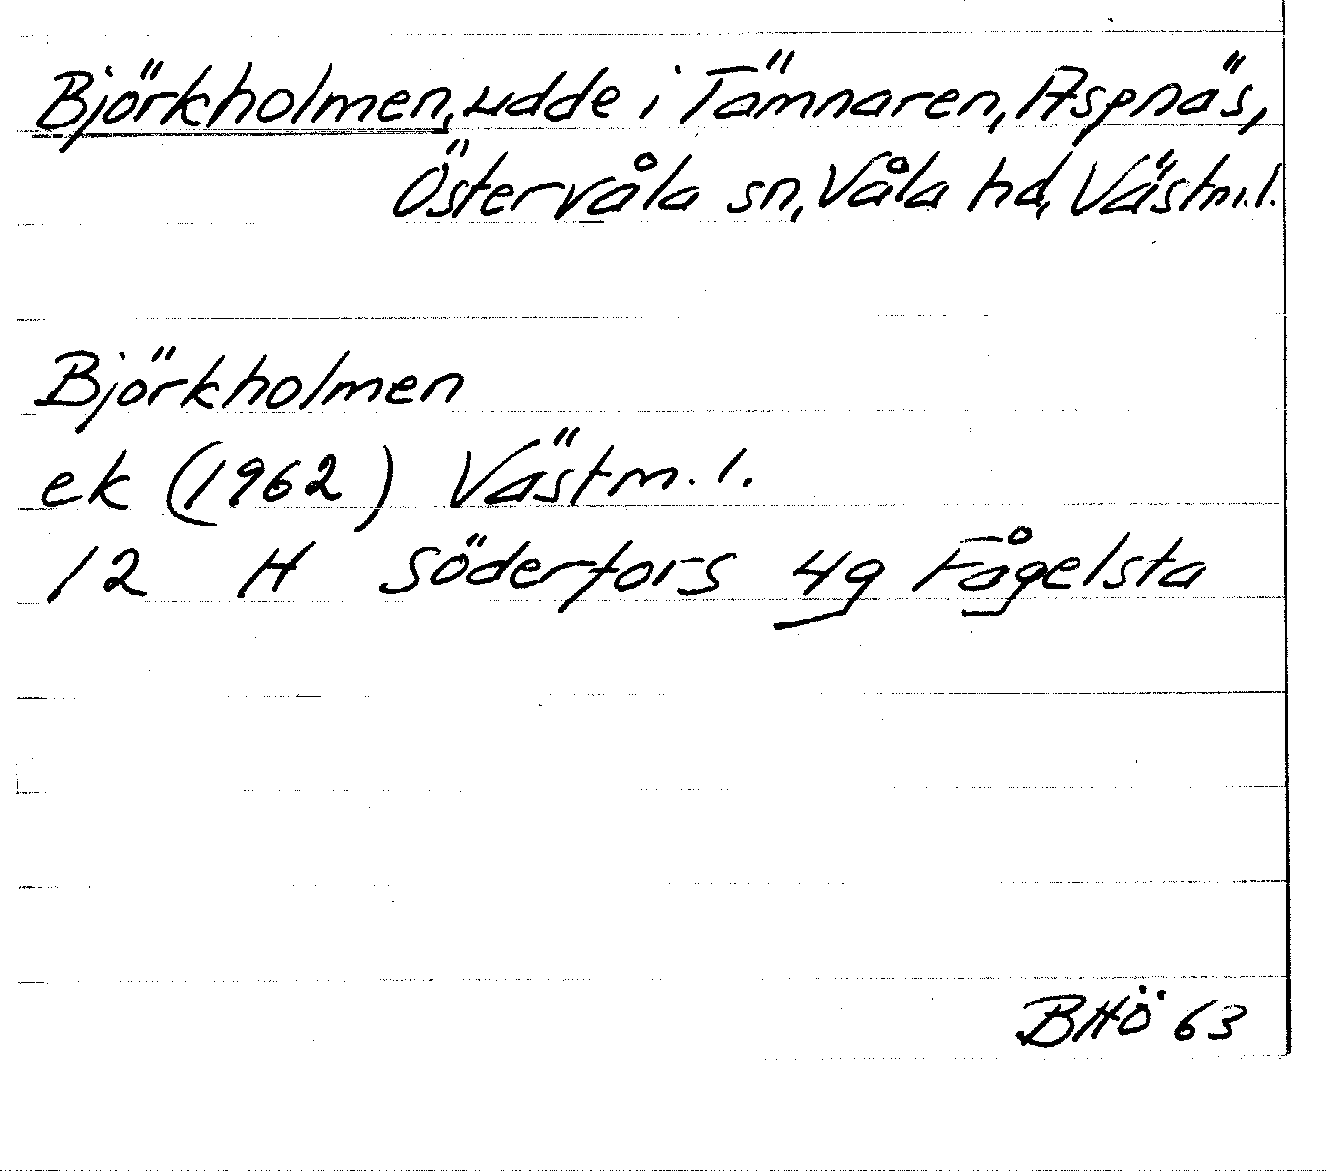 Björkholmen, udde i Tämnaren, Aspnäs,
Östervåla sn, Våla hd, Västm.l.
Björkholmen
ek (1962) Västm.l.
12 H Söderfors 4g Fågelsta
BHÖ 63